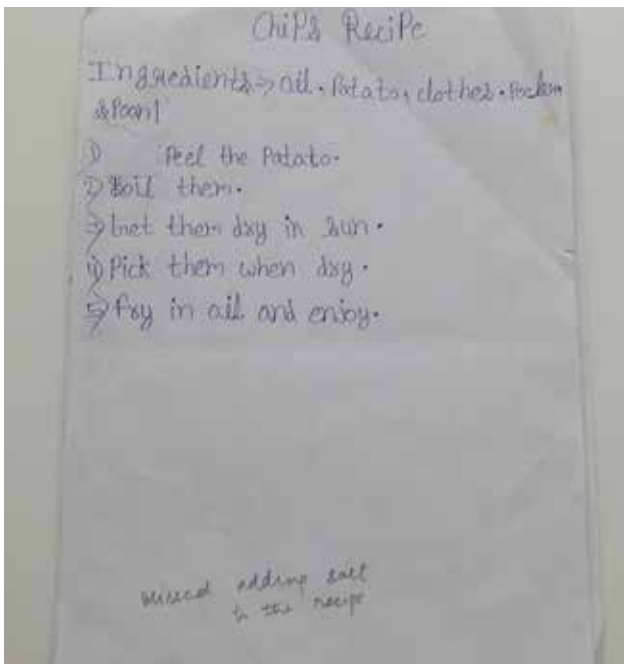 Chips Recipe
Ingredients => oil, Patato, clothes,
spoon1
1) Peel the Patato.
2) Boil them.
=> Let them dry in sun.
Pick them when dry.
5) fry in oil and enjoy.
missed adding salt
to the recipe